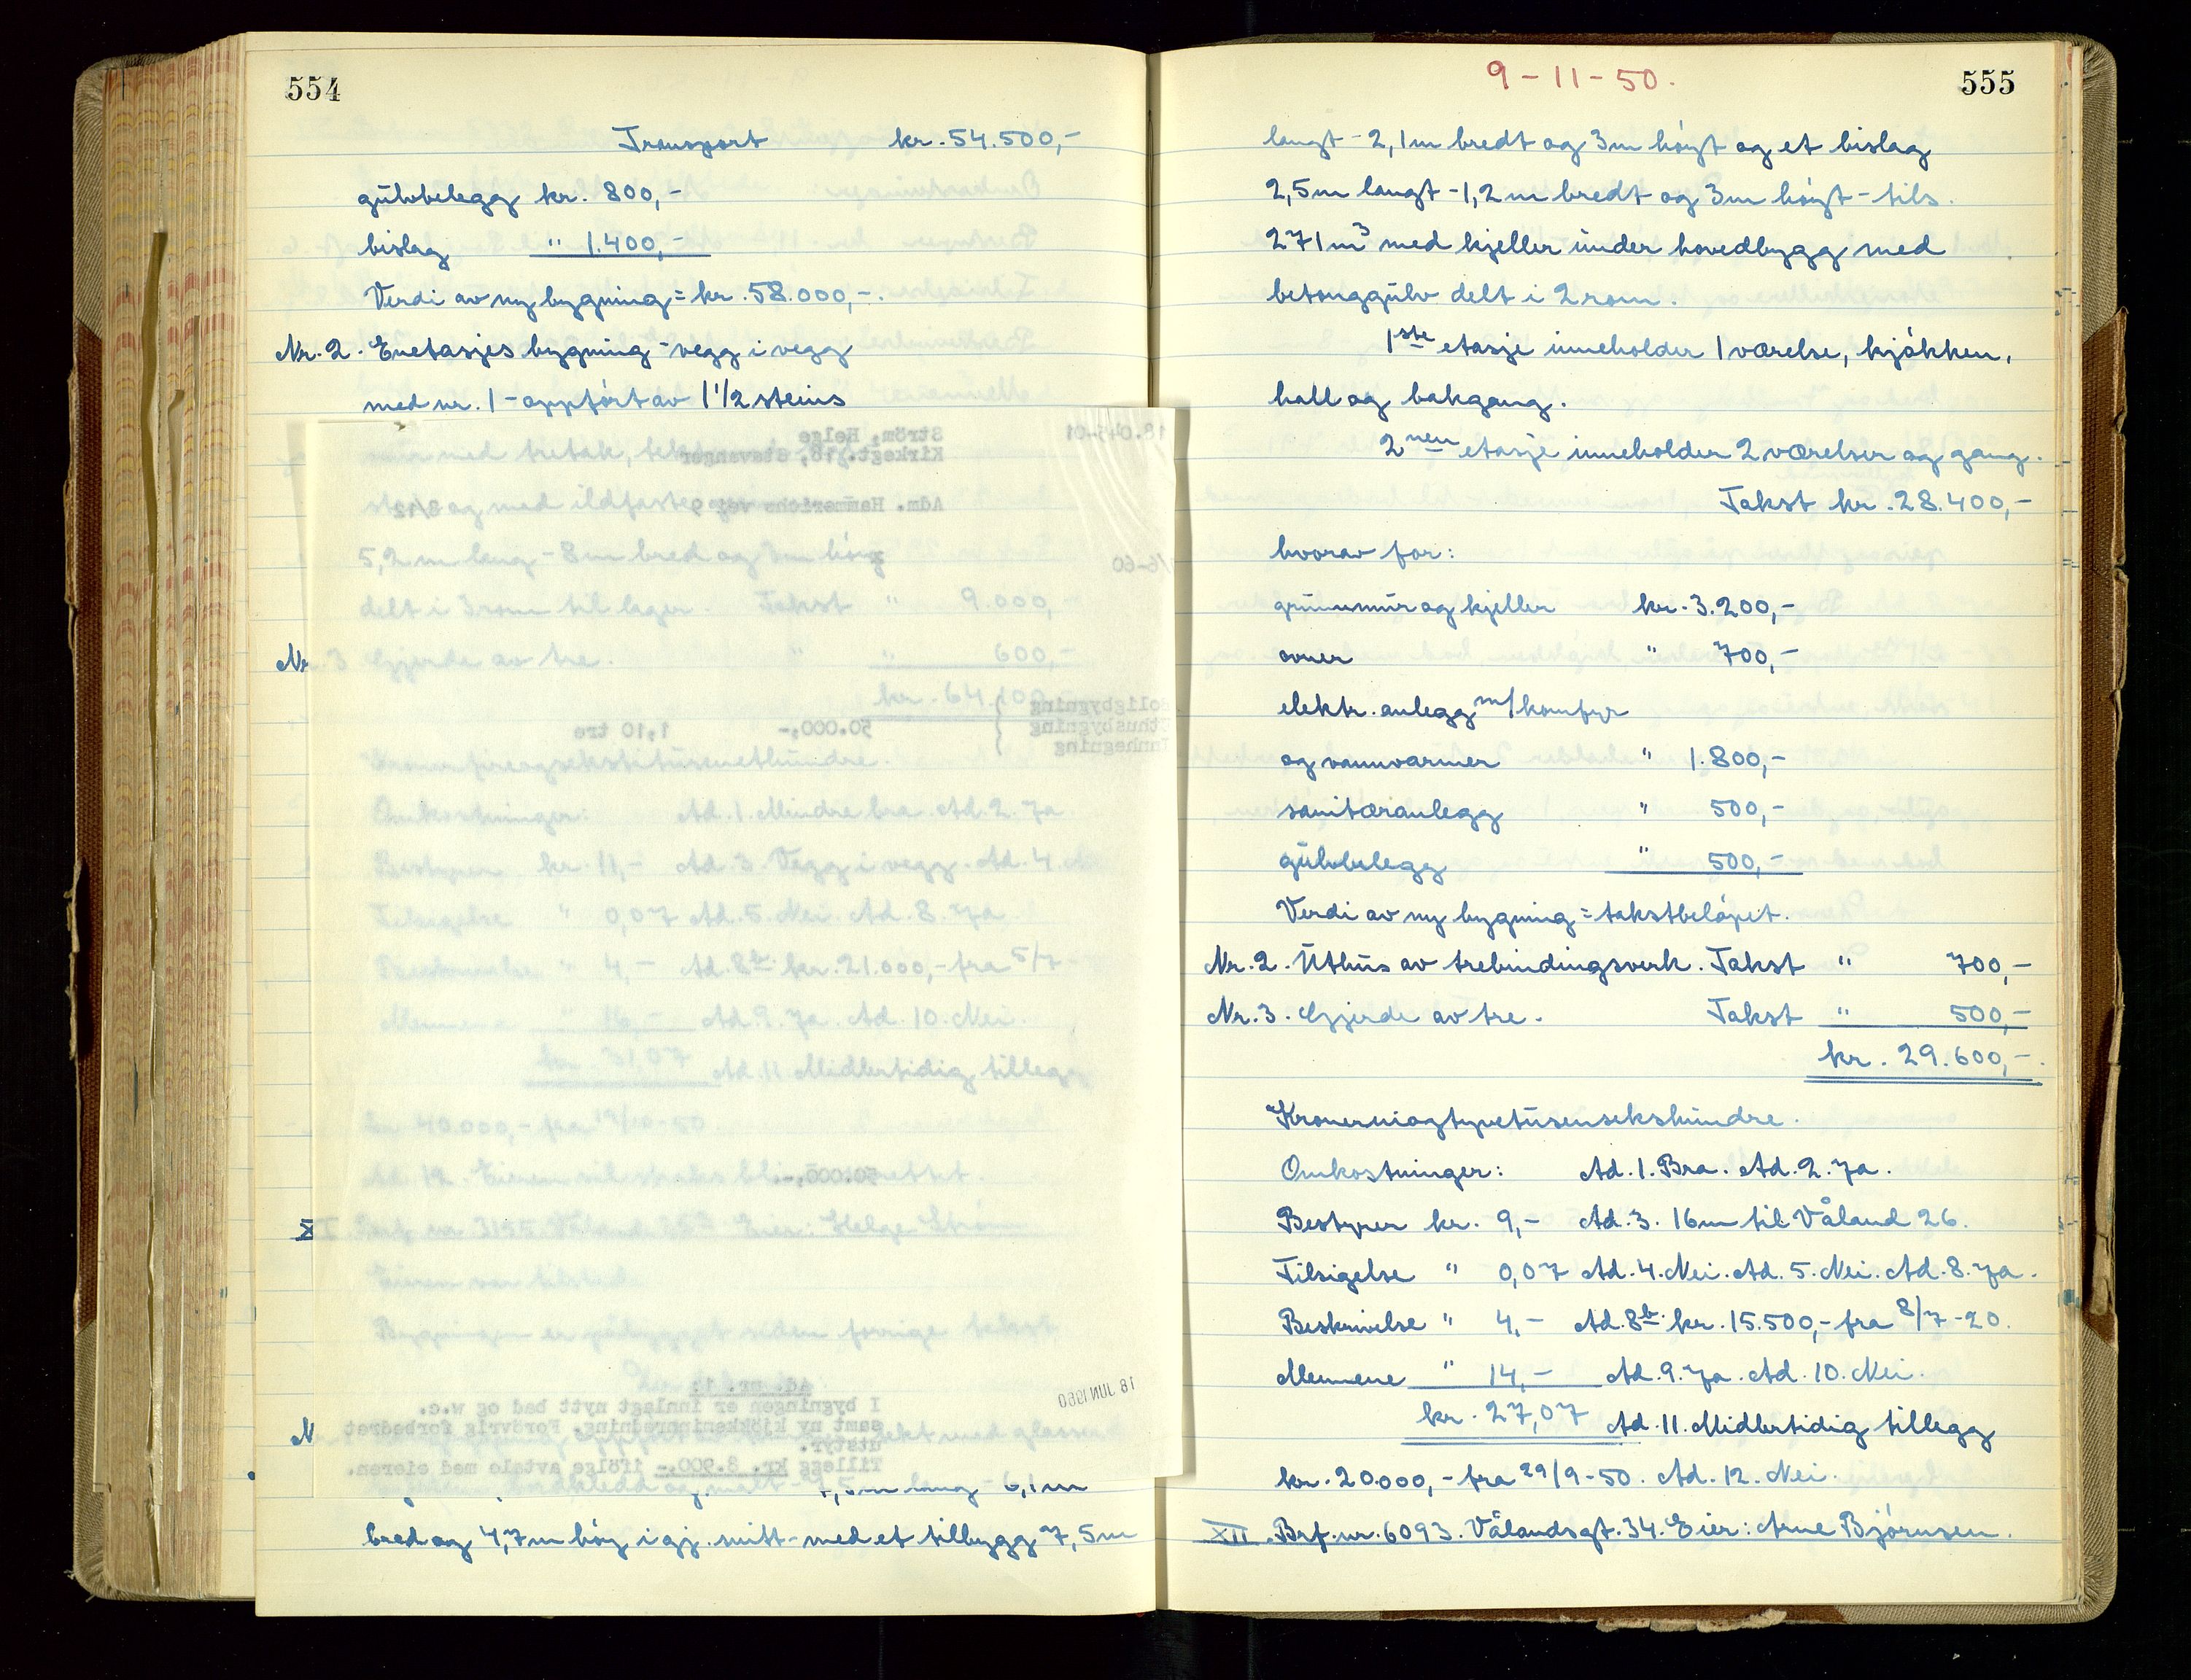 554
Transport kr. 54.500,-
gulvbelegg kr. 800,-
bislag " 1.400,-
Verdi av ny bygning = kr. 58.000,-.
Nr. 2. Enetasjes bygning - vegg i vegg
med nr. 1 - oppført av 1 1/2 steins
mur med tretak,
og med ildfaste
5,2 m lang - 8 m bred og 3 m høy
delt i 3 rom til lager. Takst " 9.000,-
Nr. 3 Gjerde av tre. " " 600,-
kr. 64.100,-
Kronerfireogsekstitusenetthundre.
Omkostninger: Ad. 1. Mindre bra. Ad. 2. Ja
Bestyrer kr. 11,- Ad. 3. Vegg i vegg. Ad. 4.
Tilsigelse " 0,07 Ad. 5. Nei. Ad. 8. Ja.
Beskrivelse " 4,- Ad. 8b. kr. 21.000,- fra 5/7-
Mennene " 16,- Ad. 9. Ja. Ad. 10. Nei.
kr. 31,07 Ad. 11 Midlertidig tillegg
kr 40.000,- fra
Ad. 12. Eieren
XI Brf. nr 3155 Våland Eier: Helge Strøm
Eieren var tilstede
Bygningen er påbygget siden forrige takst
kledd og malt - 7,5 m lang - 6,1 m
bred og 4,7 m høy i gj. snitt - med et tilbygg 7,5 m
Ström, Helge
Kirkegt. 18, Stavanger
Adm. Hammerichs vej 9 8/12
Boligbygning
Uthusbygning
Innhegning
50.000,- 1,10 tre
50.000,-
Ad. nr. 1:
I bygningen er innlagt nytt bad og w.c.
samt ny kjökkeninnredning. Forövrig forbedret
utstyr.
Tillegg kr. 8.900,- ifölge avtale med eieren.
18 JUNI 1960
9-11-50.
555
langt - 2,1 m bredt og 3 m høyt og et bislag
2,5 m langt - 1,2 m bredt og 3 m høyt - tils.
271 m³ med kjeller under hovedbygg med
betonggulv delt i 2 rom.
1ste etasje inneholder 1 værelse, kjøkken,
hall og bakgang.
2nen etasje inneholder 2 værelser og gang.
Takst kr. 28.400,-
hvorav for:
grunnmur og kjeller kr. 3.200,-
ovner " 700,-
elektr. anlegg m/komfyr
og vannvarmer " 1.800,-
sanitæranlegg " 500,-
gulvbelegg " 500,-
Verdi av ny bygning = takstbeløpet.
Nr. 2. Uthus av trebindingsverk. Takst " 700,-
Nr. 3. Gjerde av tre. Takst " 500,-
kr. 29.600,-.
Kronerniogtyvetusensekshundre.
Omkostninger: Ad. 1. Bra. Ad. 2. Ja.
Bestyrer kr. 9,- Ad. 3. 16 m til Våland 26.
Tilsigelse " 0,07 Ad. 4. Nei. Ad. 5. Nei. Ad. 8. Ja.
Beskrivelse " 4,- Ad. 8b. kr. 15.500,- fra 8/7-20.
Mennene " 14,- Ad. 9. Ja. Ad. 10. Nei.
kr. 27,07 Ad. 11. Midlertidig tillegg
kr. 20.000,- fra 29/9-50. Ad. 12. Nei.
XII. Brf. nr. 6093. Vålandsgt. 34. Eier: Arne Bjørnsen.